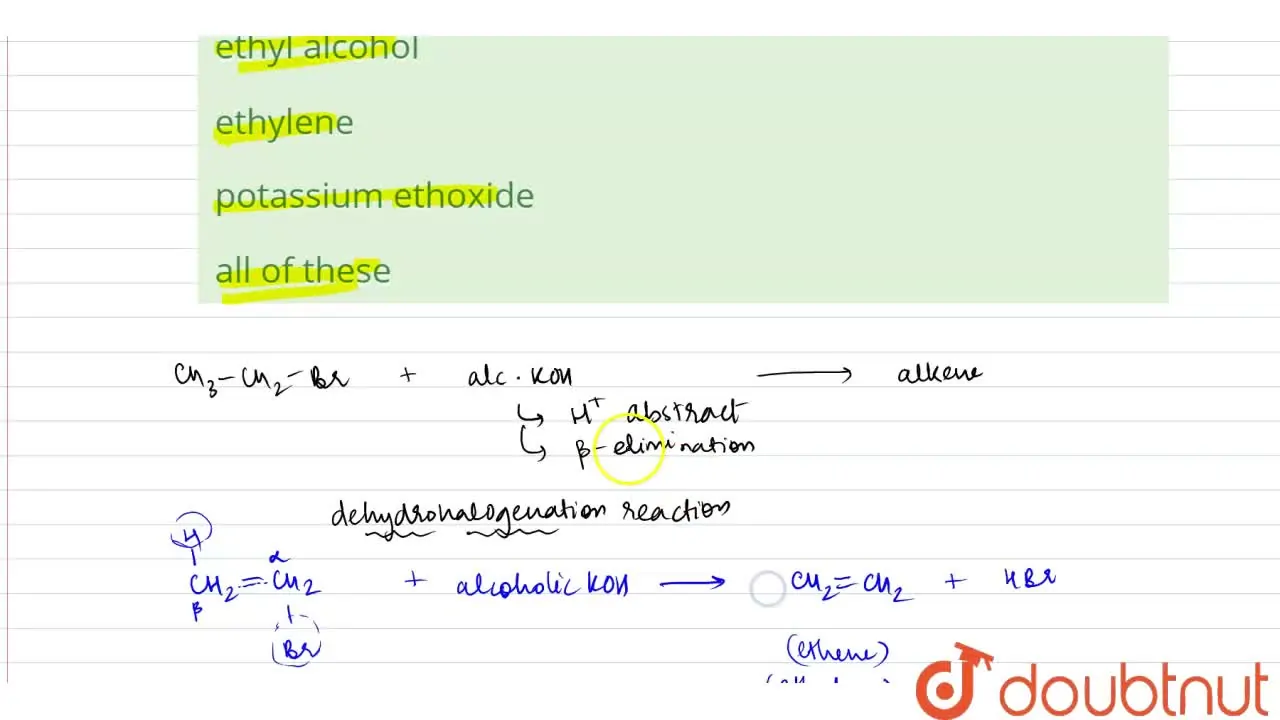 ethyl alcohol
ethylene
potassium ethoxide
all of these
CH3-CH2-Br + alc. KOH ⟶ alkene
↳ H+ abstract
↳ β-elimination
dehydrohalogenation reaction
H
α
CH2=CH2 + alcoholic KOH ⟶ CH2=CH2 + HBr
β
Br
(ethene)
doubtnut